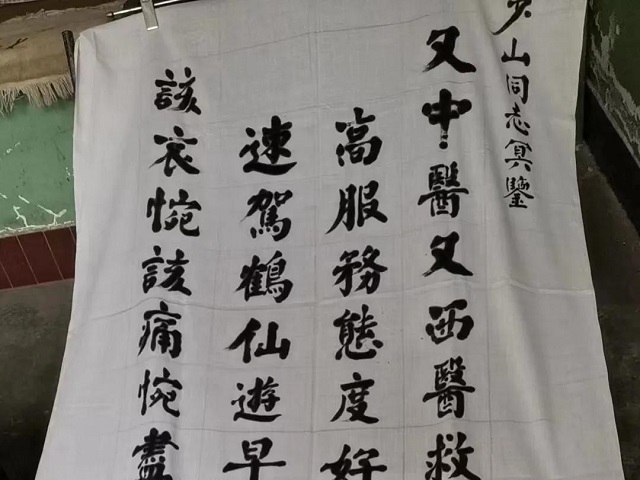 山同志冥鑒
又中醫又西醫救
高服務態度好
速駕鶴仙遊早
該哀惋該痛惋盡